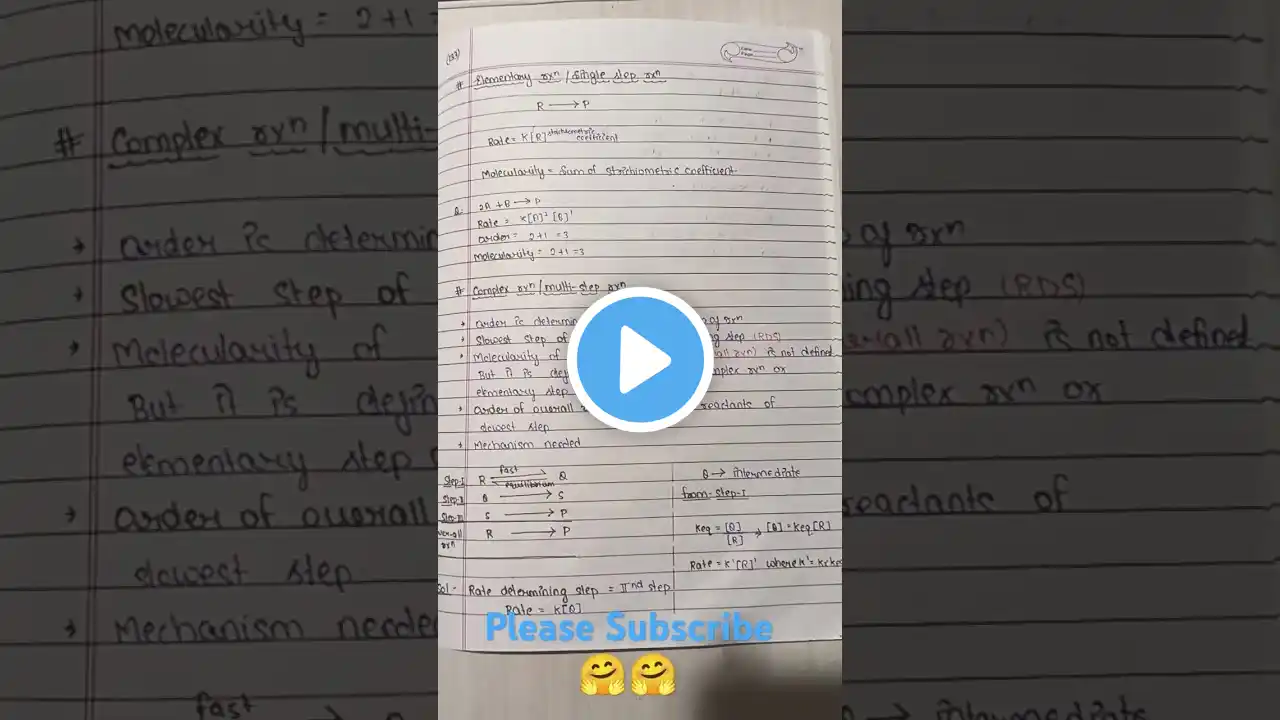 molecularity = 2+1 =
# Complex rxn / multi-
order is determin
of rxn
Slowest step of
ing step (RDS)
Molecularity of
rall rxn) is not defined
But it is
complex rxn or
elementary step
order of overall
reactants of
slowest step
Mechanism neede
fast
intermediate
# Elementary rxn / single step rxn
R → P
Rate = K[R] stoichiometric coefficient
Molecularity = Sum of stoichiometric coefficient
Q. 2A + B → P
Rate = K[A]² [B]¹
order = 2+1 = 3
molecularity = 2+1 = 3
# Complex rxn / multi-step rxn
order is determin of rxn
Slowest step of ing step (RDS)
Molecularity of all rxn) is not defined
But it is mplex rxn or
elementary step
order of overall reactants of
slowest step
Mechanism needed
Step-I R fast equilibrium Q
Q → intermediate
Step-II Q → S
from step-I
Step-III S → P
overall rxn R → P
Keq = [Q]/[R] → [Q] = Keq [R]
Rate = K'[R]' where K' = K×Keq
Sol - Rate determining step = IInd step
Rate = K[Q]
Please Subscribe